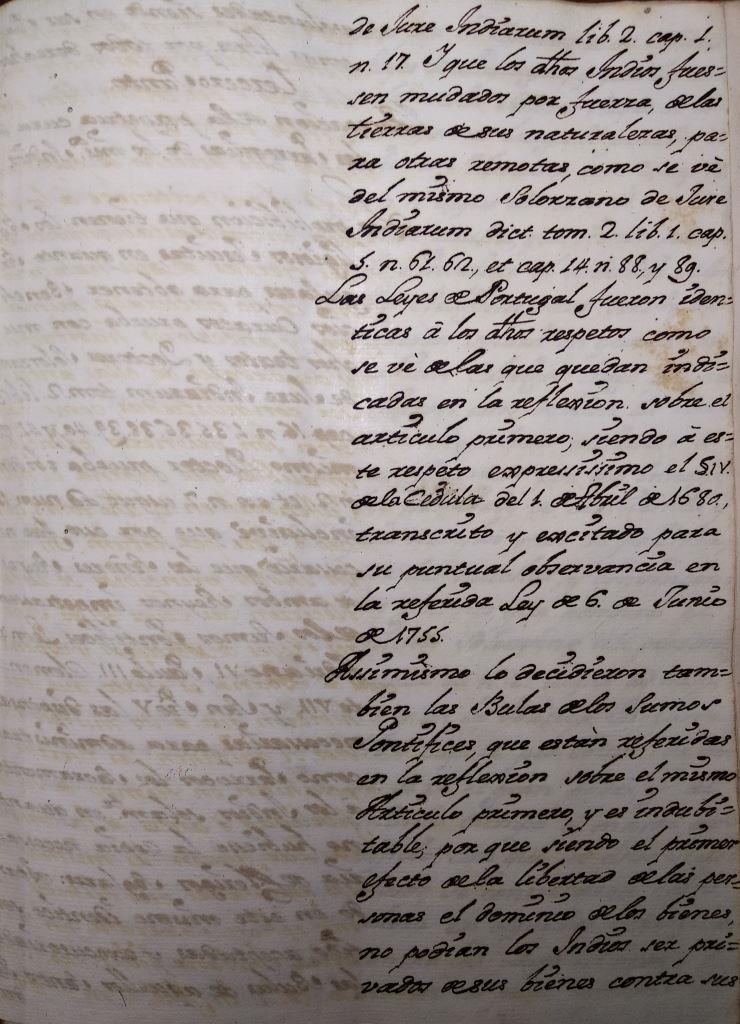 de Jure Indiarum lib. 2. cap. 1.
n. 17. Y que los dhos Indios fues=
sen mudados por fuerza, de las
tierras de sus naturalezas, pa=
ra otras remotas, como se vè
del mismo Solorzano de Jure
Indiarum dict. tom. 2. lib. 1. cap.
5. n. 61. 62., et cap. 14. n. 88, y 89.
Las Leyes de Portugal fueron iden=
ticas â los dhos respetos como
se vè de las que quedan indi=
cadas en la reflexion sobre el
articulo primero; siendo â es=
te respeto expressissimo el §. IV.
de la Cedula del 1. de Abril de 1680.,
transcrito y excitado para
su puntual observancia en
la referida Ley de 6. de Junio
de 1755.
Assimismo lo decidieron tam=
bien las Bulas de los Sumos
Pontifices, que estàn referidas
en la reflexion sobre el mismo
Articulo primero, y es indubi=
table; por que siendo el primer
efecto de la libertad de las per=
sonas el dominio de los bienes,
no podian los Indios ser pri=
vados de sus bienes contra sus